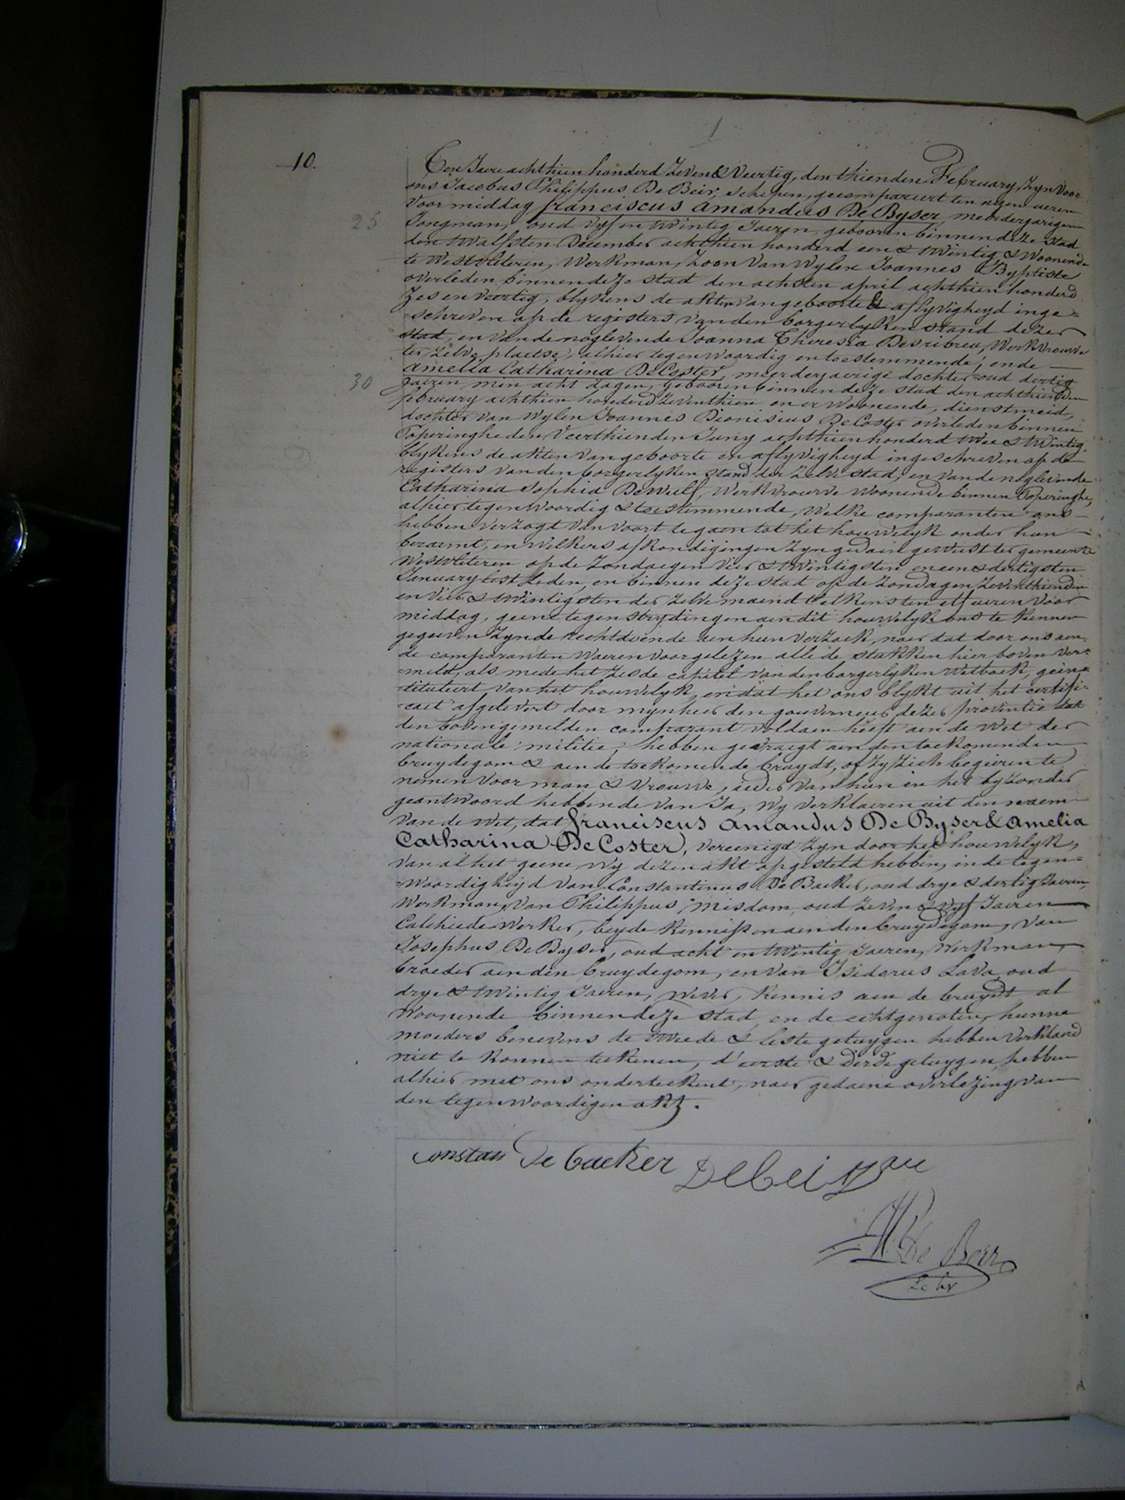 10.
Een Jaere achthien honderd zeven & Veertig, den thienden February, Zyn Voor
ons Jacobus Philippus De Beir Schepen, gecompareert ten negen ueren
Voormiddag franciscus amandus De Byser, meerderjarigen
25
Jongman, oud Vyf en twintig Jaeren, gebooren binnen deze Stad
den twalfsten December achthien honderd een & twintig & Woonende
te Westvleteren, Werkman, Zoon Van Wylen Joannes Byptiste
overleden binnen deze stad den achsten april achthien honderd
Zes en Veertig, blykens de akten van geboorte & aflyvigheyd inge=
schreven op de registers van den borgerlyken stand dezer
stad, en van de noglevende Joanna Theresia Desribreu, Werkvrouwe
ter zelve plaetse, alhier tegenwoordig en toestemmende; ende
amelia Catharina DeCoster, meerderjaerige dochter oud dertig
30
jaeren min acht dagen, gebooren binnen deze stad den achthiensten
february achthien honderd zeventhien en er Woonende, dienstmeid,
dochter Van Wylen Joannes Dionisius DeCoster overleden binnen
Poperinghe den Veerthienden Juny achthienhonderd twee & twintig
blykens de akten van geboorte en aflyvigheyd ingeschreven op de
registers van den borgerlyken stand der zelve stad, en van de noglevende
Catharina Sophia DeWulf, Werkvrouwe Woonende binnen Poperinghe,
alhier tegenwoordig & toestemmende, Welke comparanten ons
hebben Verzogt Van Voort te gaen tot het houwelyk onder hun
beraemt, en Welkers afkondigingen Zyn gedaen geweest ter gemeente
Westvleteren op de Zondaegen Vier & twintigsten en een & dertigsten
January lest leden, en binnen deze stad op de Zondagen Zeventhienden
en Vier & twintigsten der zelve maend telkens ten elf ueren Voor
middag, geene tegenstrydingen aen dit houwelyk ons te kennen
gegeven Zynde rechtdoende aen hun Verzoek, naer dat door ons aen
de comparanten Waeren voorgelezen alle de stukken hier boven Ver=
meld, als mede het zesde capitel van den borgerlyken Wetboek, geïn=
tituleert Van het houwelyk, en dat het ons blykt uit het certifi=
caet afgelevert door mynheer den gouverneur dezer provintie dat
den bovengemelden comparant Voldaen heeft aen de Wet der
nationale militie; hebben gevraegt aen den toekomenden
bruydegom & aen de toekomende bruydt, of zy zich begeeren te
nemen Voor man & Vrouwe, ieder van hun in het byzonder
geantwoord hebbende Van Ja, Wy Verklaeren uit den naem
Van de Wet, dat franciscus amandus De Byser & amelia
Catharina DeCoster, Vereenigd Zyn door het houwelyk,
Van al het geene Wy dezen akt opgesteld hebben, in de tegen=
Woordigheyd Van Constantinus DeBacker, oud drye & dertig Jaeren
Werkman, Van Philippus Misdom, oud Zeven & Vyf Jaeren
Calcheide Werker, beyde kennissen aen den bruydegom, Van
Josephus DeByser, oud acht en twintig Jaeren, Werkman,
broeder aen den bruydegom, en Van Isidorus Lava, oud
drye & twintig Jaeren, Wever, kennis aen de bruydt al
Woonende binnen deze stad, en de echtgenoten, hunne
moeders benevens de tweede & leste getuygen hebben Verklaerd
niet te konnen tekenen, d'eerste & derde getuygen, hebben
alhier met ons onderteekent, naer gedaene overlezing van
den tegenwoordigen akt.
Constan De backer
De Beir